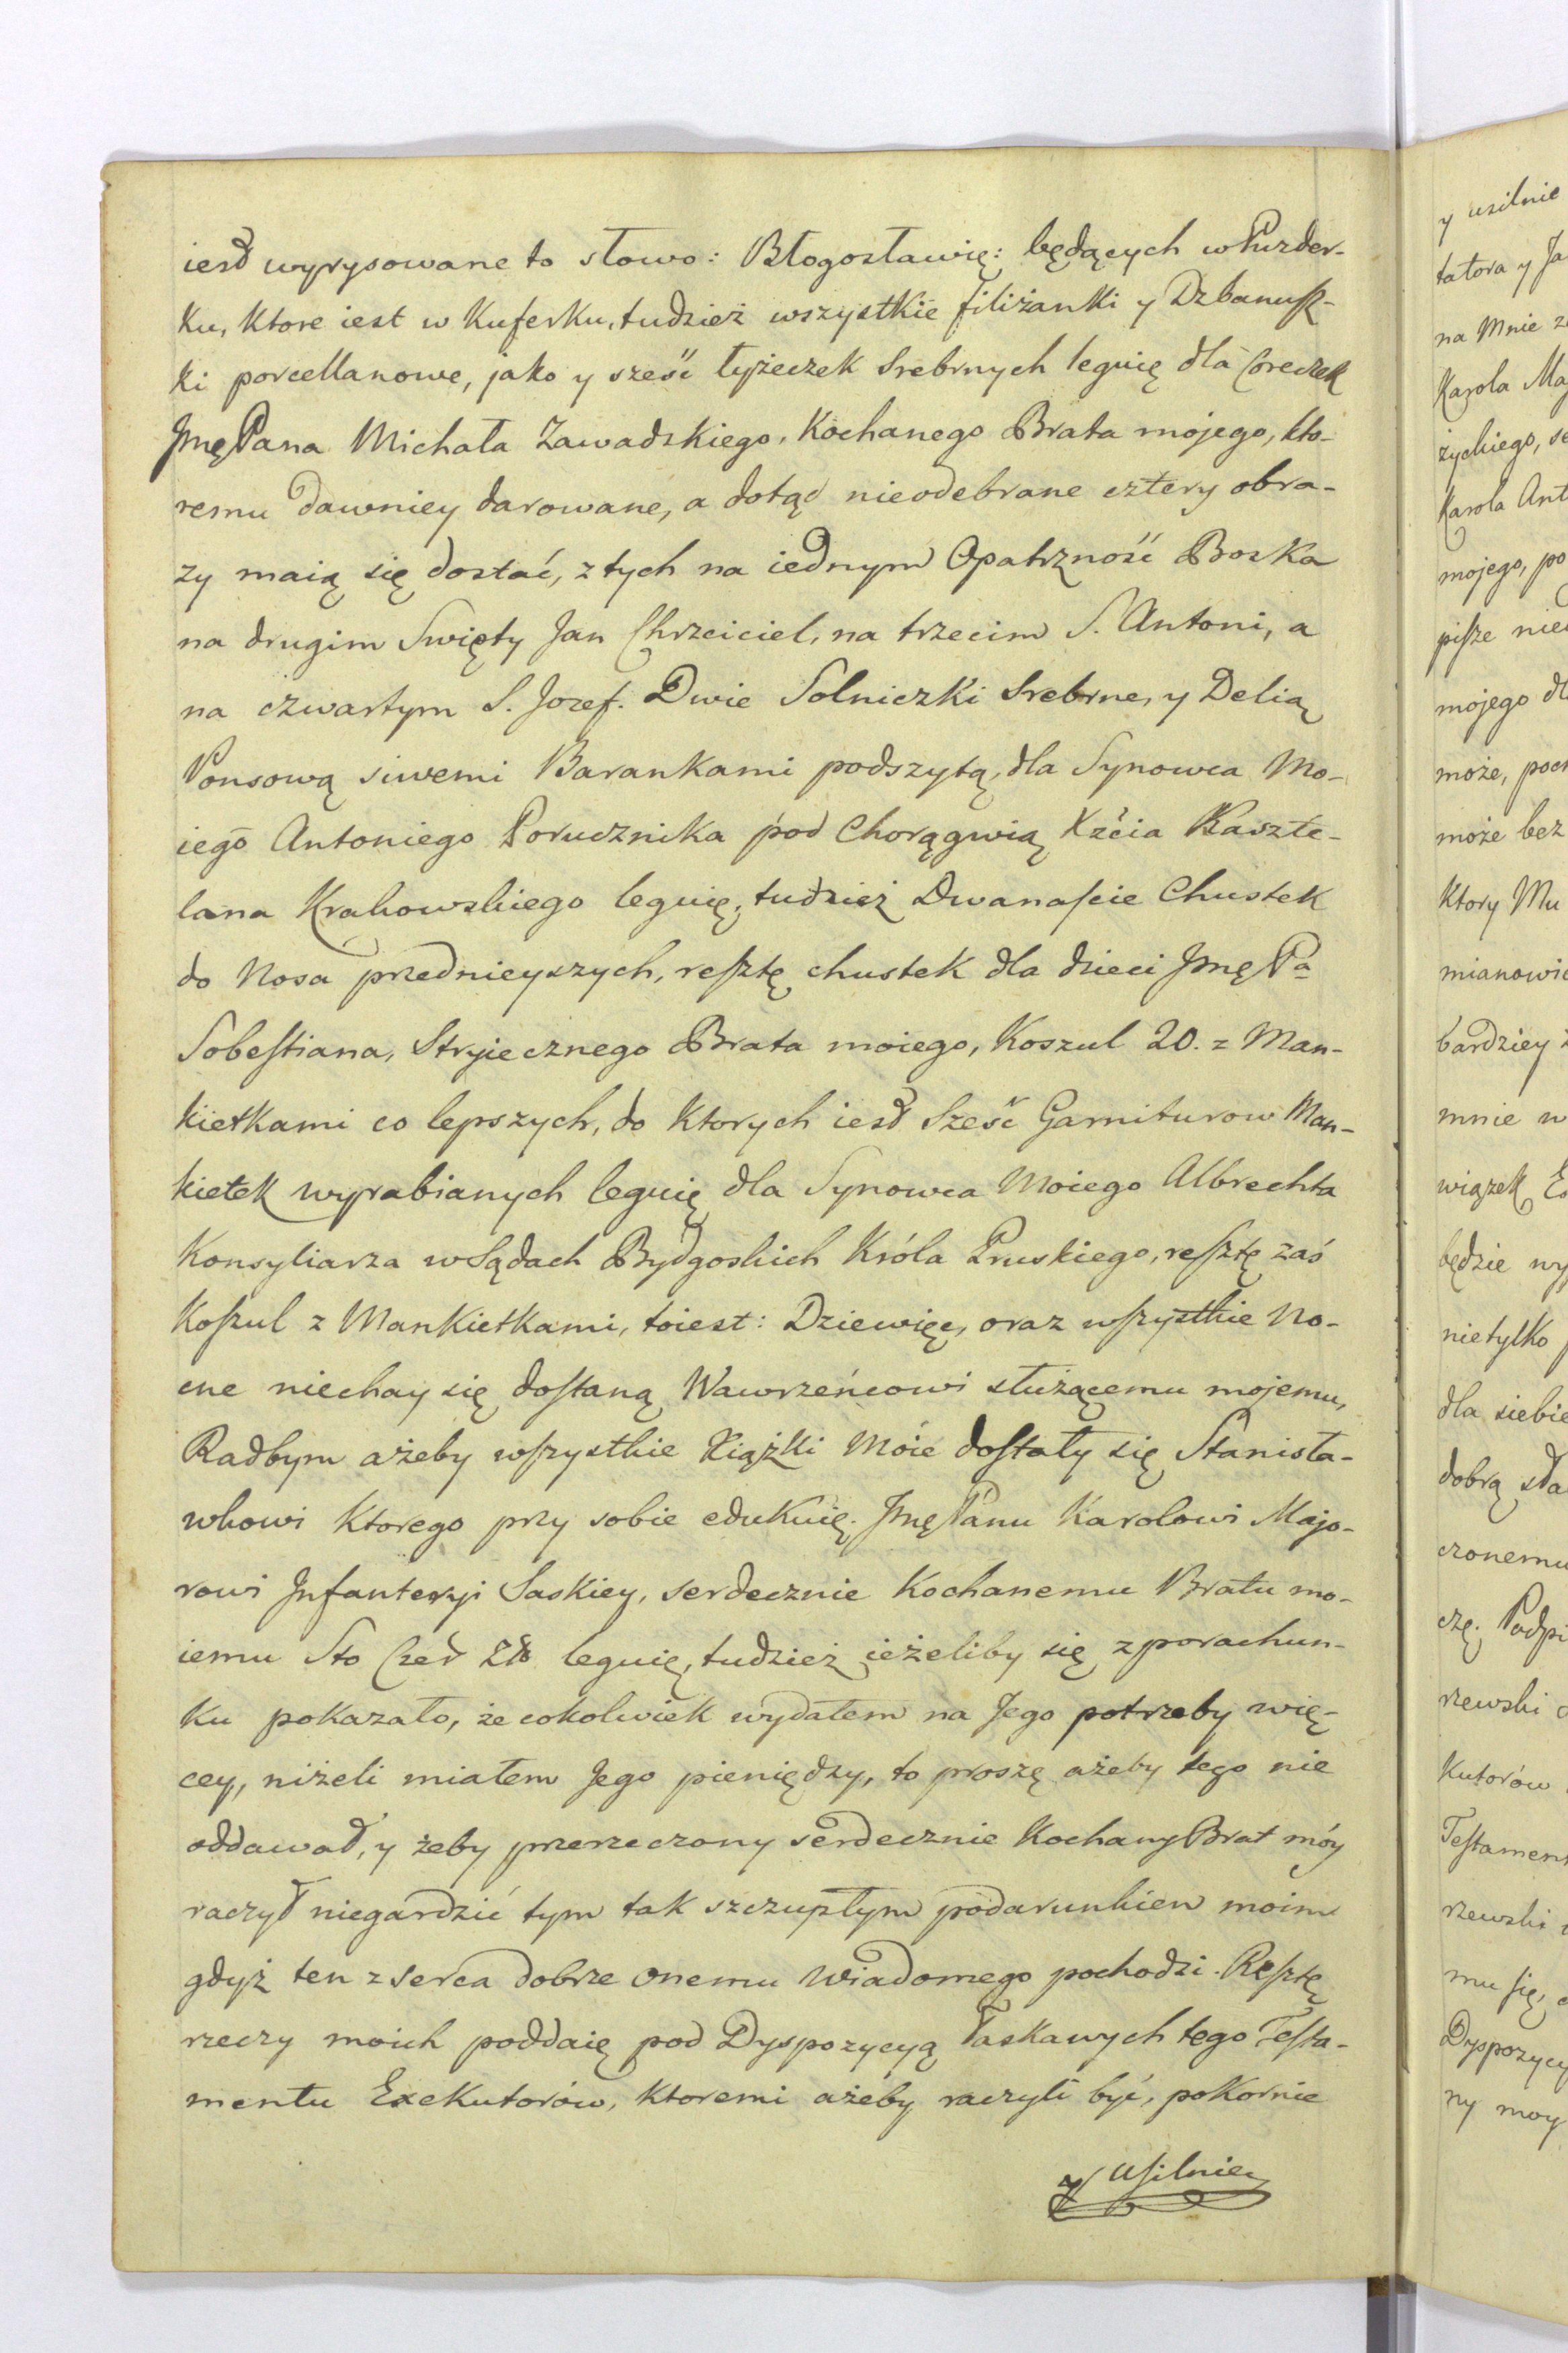 iest wyrysowane to słowo: Błogosławię: będących w Puzder-
ku, ktore iest w Kuferku, tudzież wszystkie filiżanki y Dzbanusz-
ki porcellanowe, jako y sześć łyżeczek srebrnych leguię dla Coreczek
Jmę Pana Michała Zawadzkiego, Kochanego Brata mojego, kto-
remu dawniey darowane, a dotąd nieodebrane cztery obra-
zy maią się dostać, z tych na iednym Opatrzność Boska
na drugim Swięty Jan Chrzciciel, na trzecim S. Antoni, a
na czwartym S. Jozef. Dwie Solniczki srebrne, y Delią
Ponsową siwemi Barankami podszytą, dla Synowca Mo-
iego Antoniego Porucznika pod Chorągwią Xżcia Kaszte-
lana Krakowskiego leguię, tudzież Dwanaście Chustek
do Nosa przednieyszych, resztę chustek dla dzieci Jmę Pa
Sobestiana, Stryiecznego Brata moiego, Koszul 20. z Man-
kietkami co lepszych, do ktorych iest Sześć Garniturow Man-
kietek wyrabianych leguię dla Synowca Moiego Albrechta
Konsyliarza w Sądach Bydgoskich Króla Pruskiego, resztę zaś
Koszul z Mankietkami, toiest: Dziewięć, oraz wszystkie No-
cne niechay się dostaną Wawrzeńcowi służącemu mojemu,
Radbym ażeby wszystkie Xiążki Moie dostały się Stanisła-
wkowi ktorego przy sobie edukuię. Jmę Panu Karolowi Majo-
rowi Jnfanteryi Saskiey, serdecznie Kochanemu Bratu mo-
iemu Sto Czer Zł leguię, tudzież ieżeliby się z porachun-
ku pokazało, że cokolwiek wydałem na Jego potrzeby wię-
cey, niżeli miałem Jego pieniędzy, to proszę ażeby tego nie
oddawał, y żeby przerzeczony serdecznie Kochany Brat móy
raczył niegardzić tym tak szczupłym podarunkiem moim
gdyż ten z serca dobrze onemu wiadomego pochodzi. Resztę
rzeczy moich poddaię pod Dyspozycyą Łaskawych tego Testa-
mentu Exekutorów, ktoremi ażeby raczyli być, pokornie
y usilnie
y usilnie
tatora y Ja
na Mnie z
Karola Ma
życkiego, se
Karola Ant
mojego, po
pisze nie
mojego dl
może, poch
może bez
ktory Mu
mianowic
bardziey
mnie w
wiązek
będzie wy
nietylko
dla siebie
dobrą sła
czonemu
czę. Podpi
rzewski
kutorów
Testamen
rzewski
mu się,
Dyspozycy
ny moy